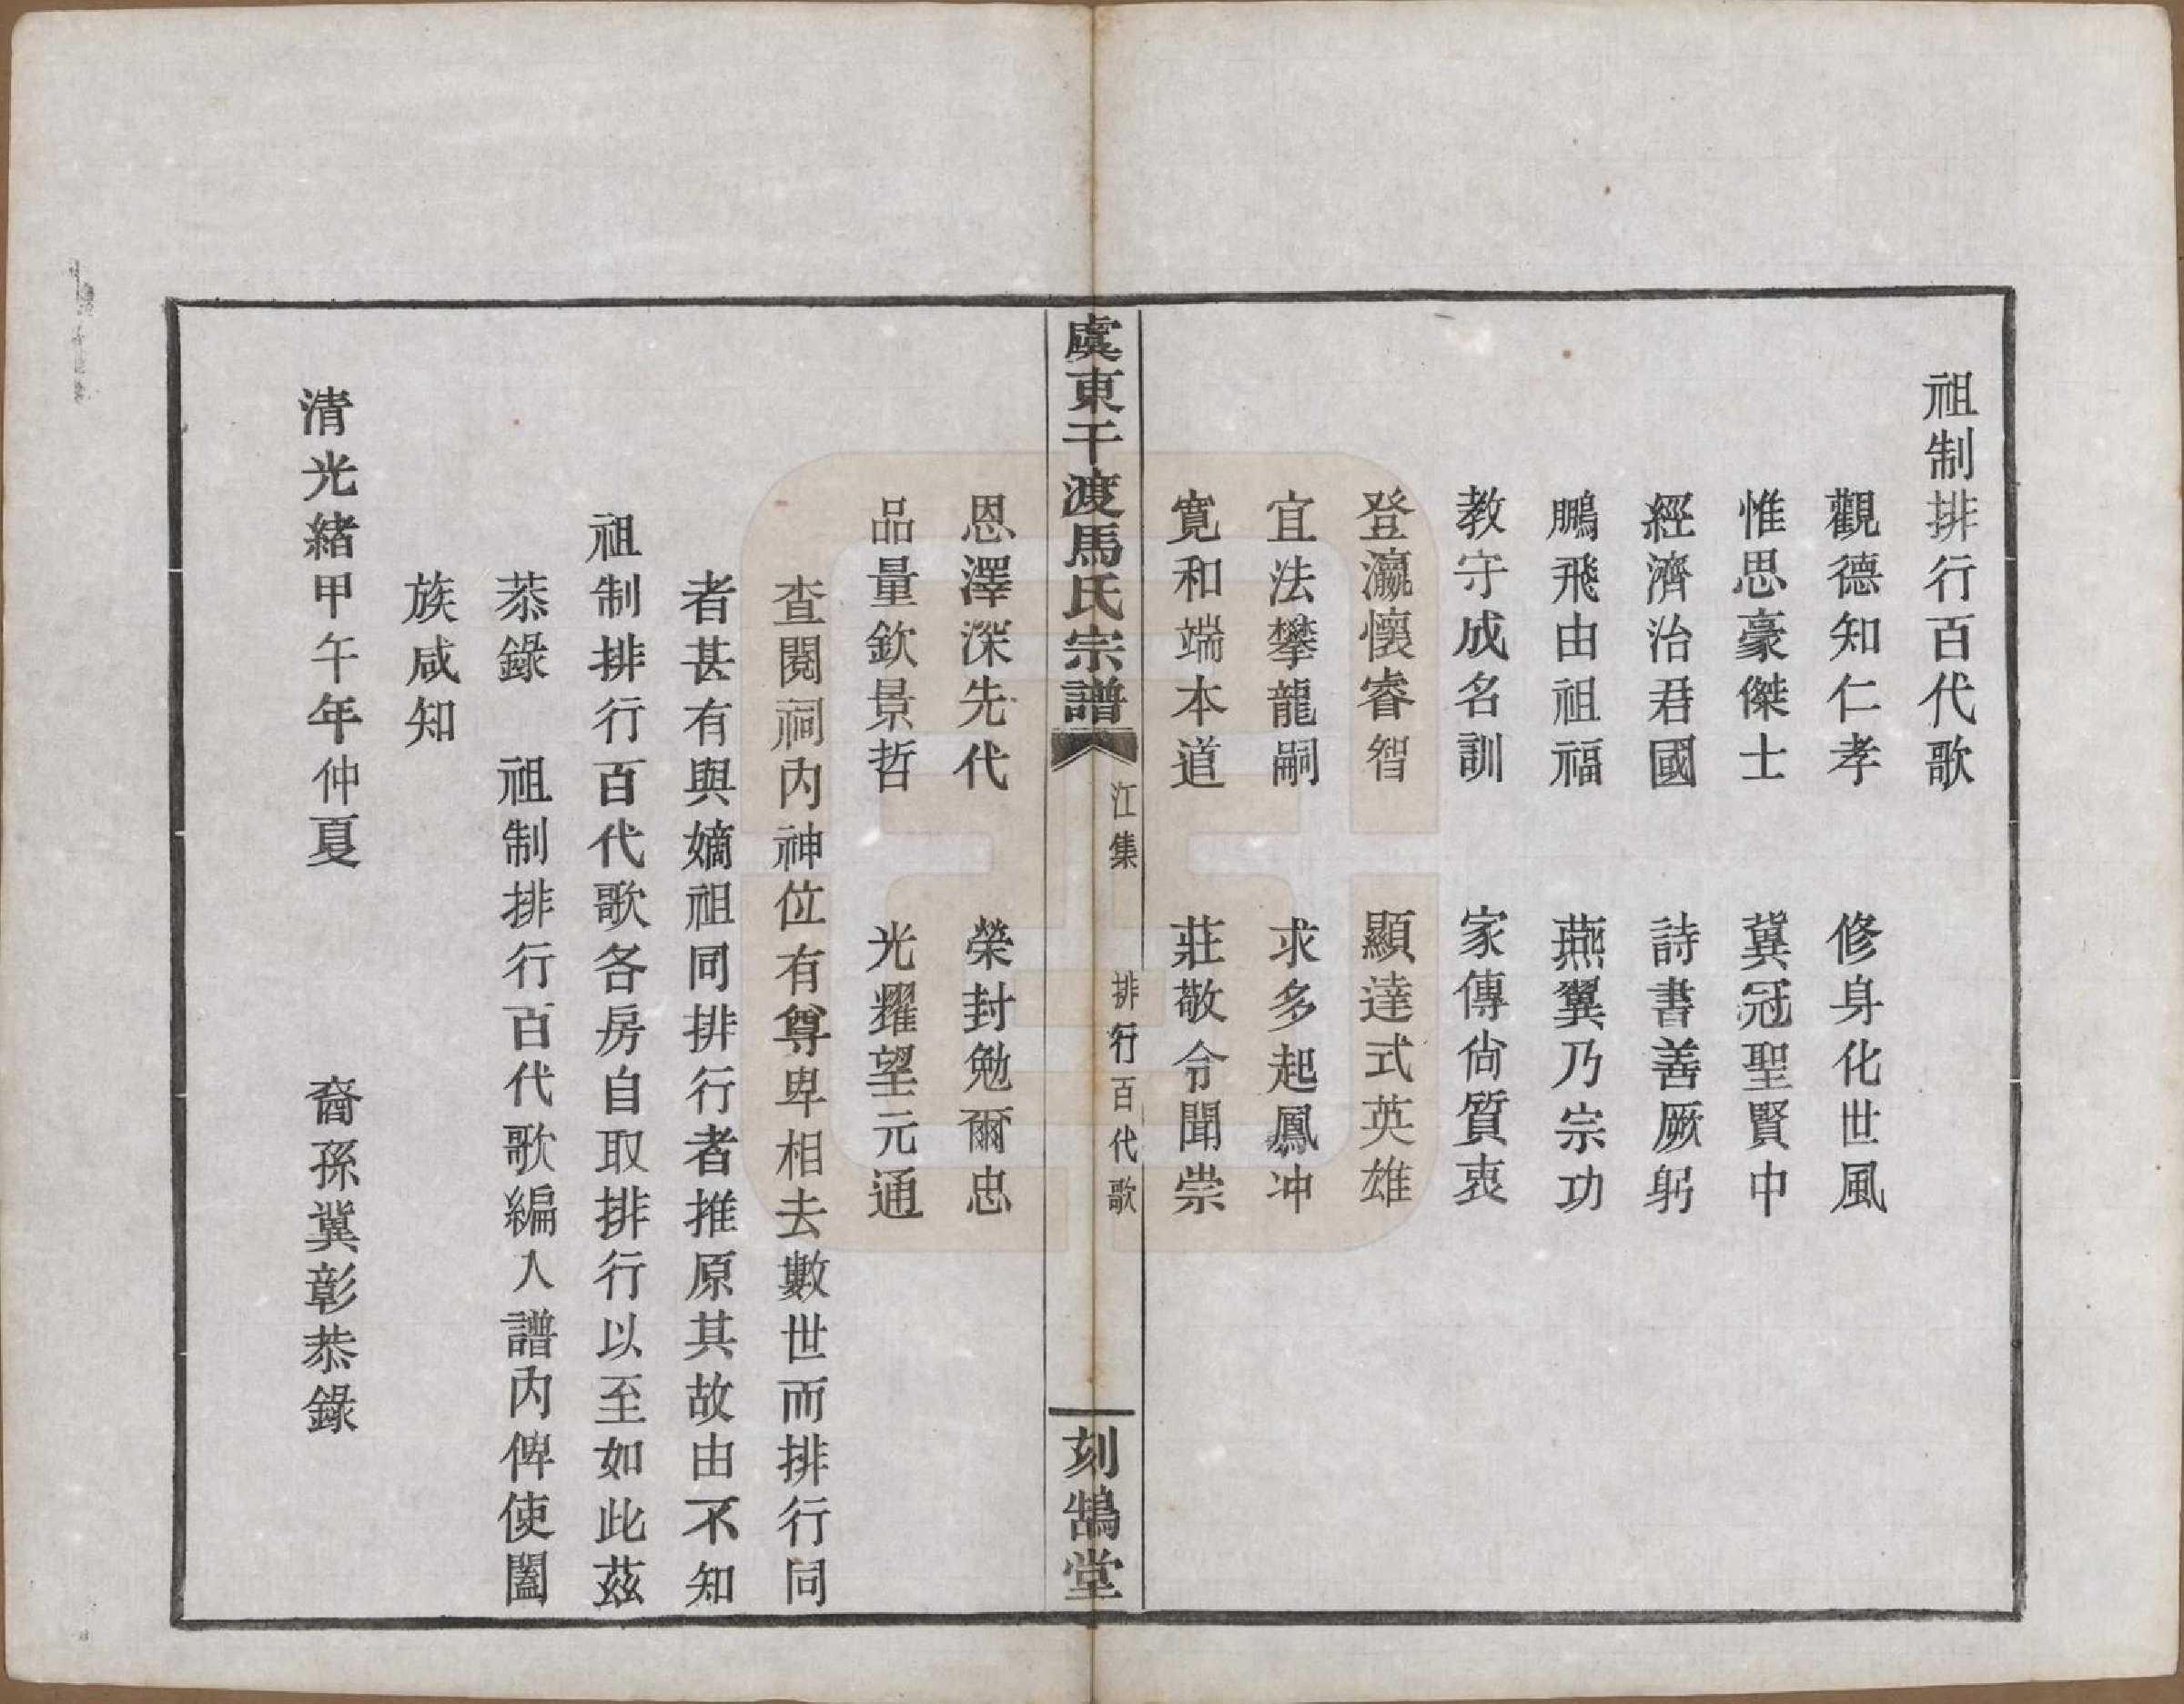 祖制排行百代歌
觀德知仁孝　修身化世風
惟思豪傑士　冀冠聖賢中
經濟治君國　詩書善厥躬
鵬飛由祖福　燕翼乃宗功
教守成名訓　家傳尙質衷
登瀛懷睿智　顯達式英雄
宜法攀龍嗣　求多起鳳冲
寬和端本道　莊敬令聞崇
虞東干渡馬氏宗譜　江集　排行百代歌　刻鵠堂
恩澤深先代　榮封勉爾忠
品量欽景哲　光耀望元通
查閱祠內神位有尊卑相去數世而排行同
者甚有與嫡祖同排行者推原其故由不知
祖制排行百代歌各房自取排行以至如此茲
恭錄　祖制排行百代歌編入譜內俾使闔
族咸知
清光緒甲午年仲夏　裔孫冀彰恭錄